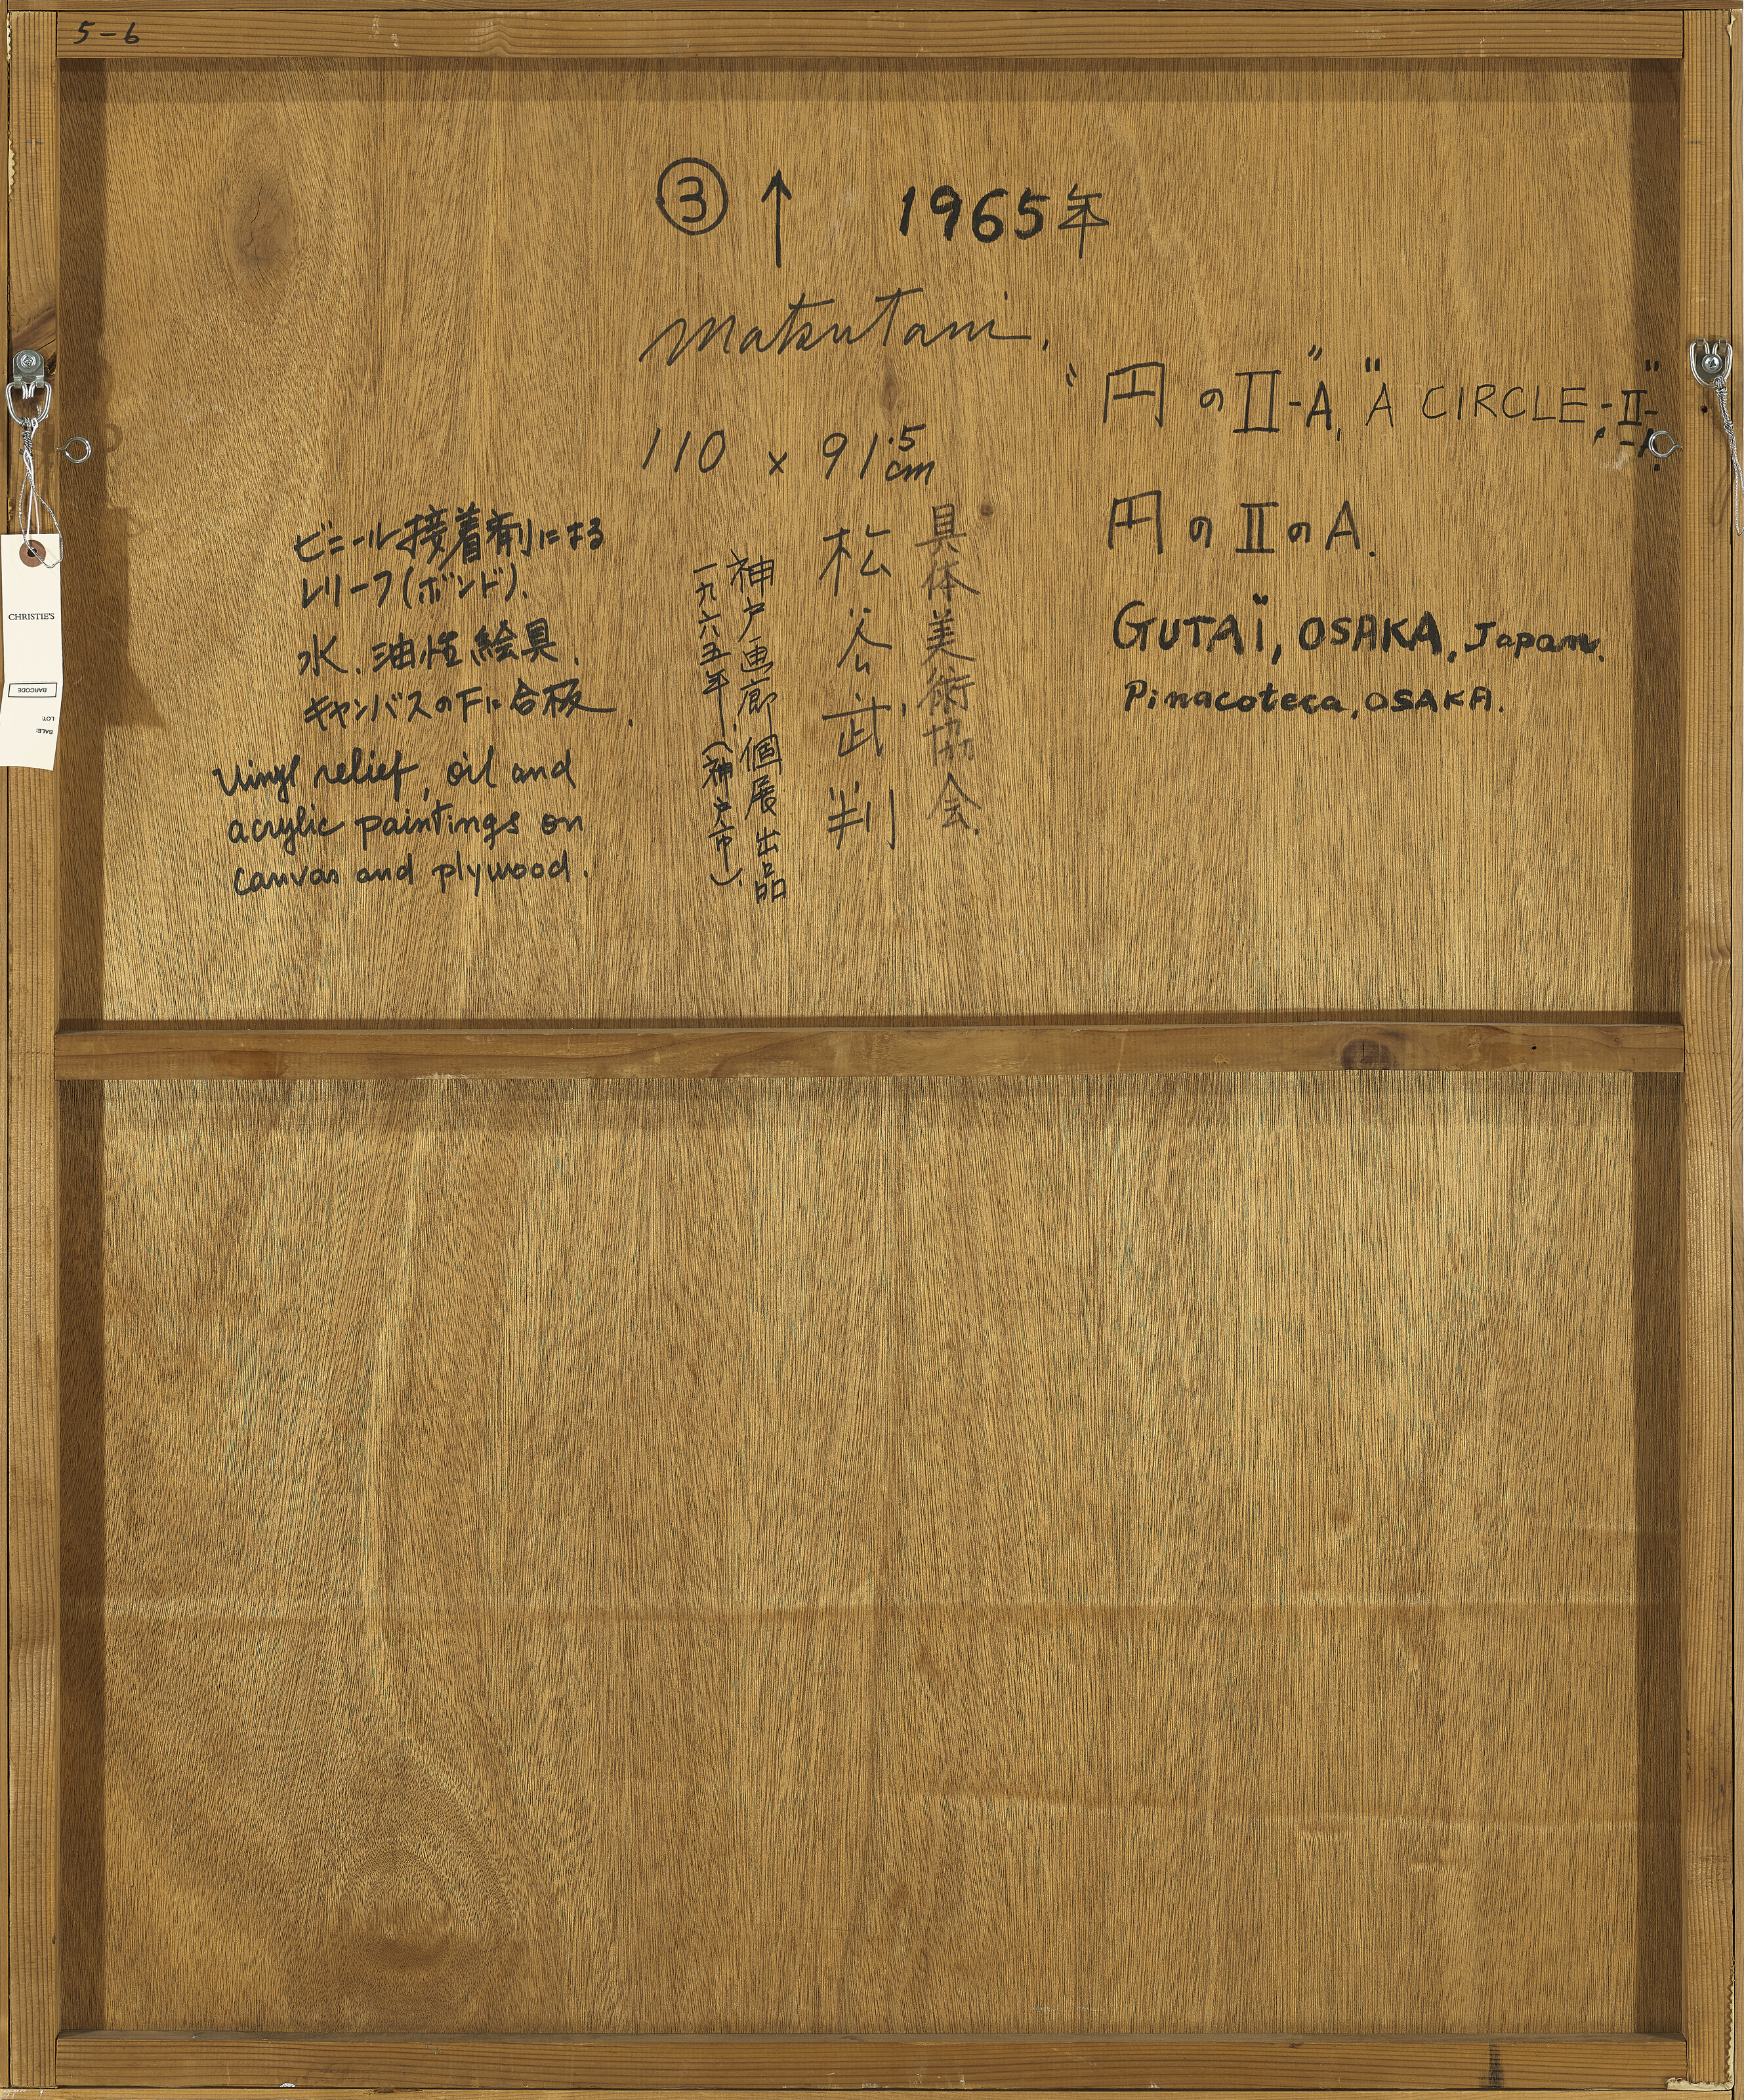 5-6
③ ↑ 1965年
Matsutani.
"円のⅡ-A", "A CIRCLE,-Ⅱ-
-A."
110 x 91.5
cm
円のⅡのA.
GUTAÏ, OSAKA, Japan.
Pinacoteca, OSAKA.
具体美術協会.
松谷武判
神戸画廊個展出品
一九六五年.(神戸市).
ビニール接着剤による
レリーフ(ボンド).
水.油性絵具.
キャンバスの下に合板.
Vinyl relief, oil and
acrylic paintings on
canvas and plywood.
CHRISTIE'S
BARCODE
LOT:
SALE: